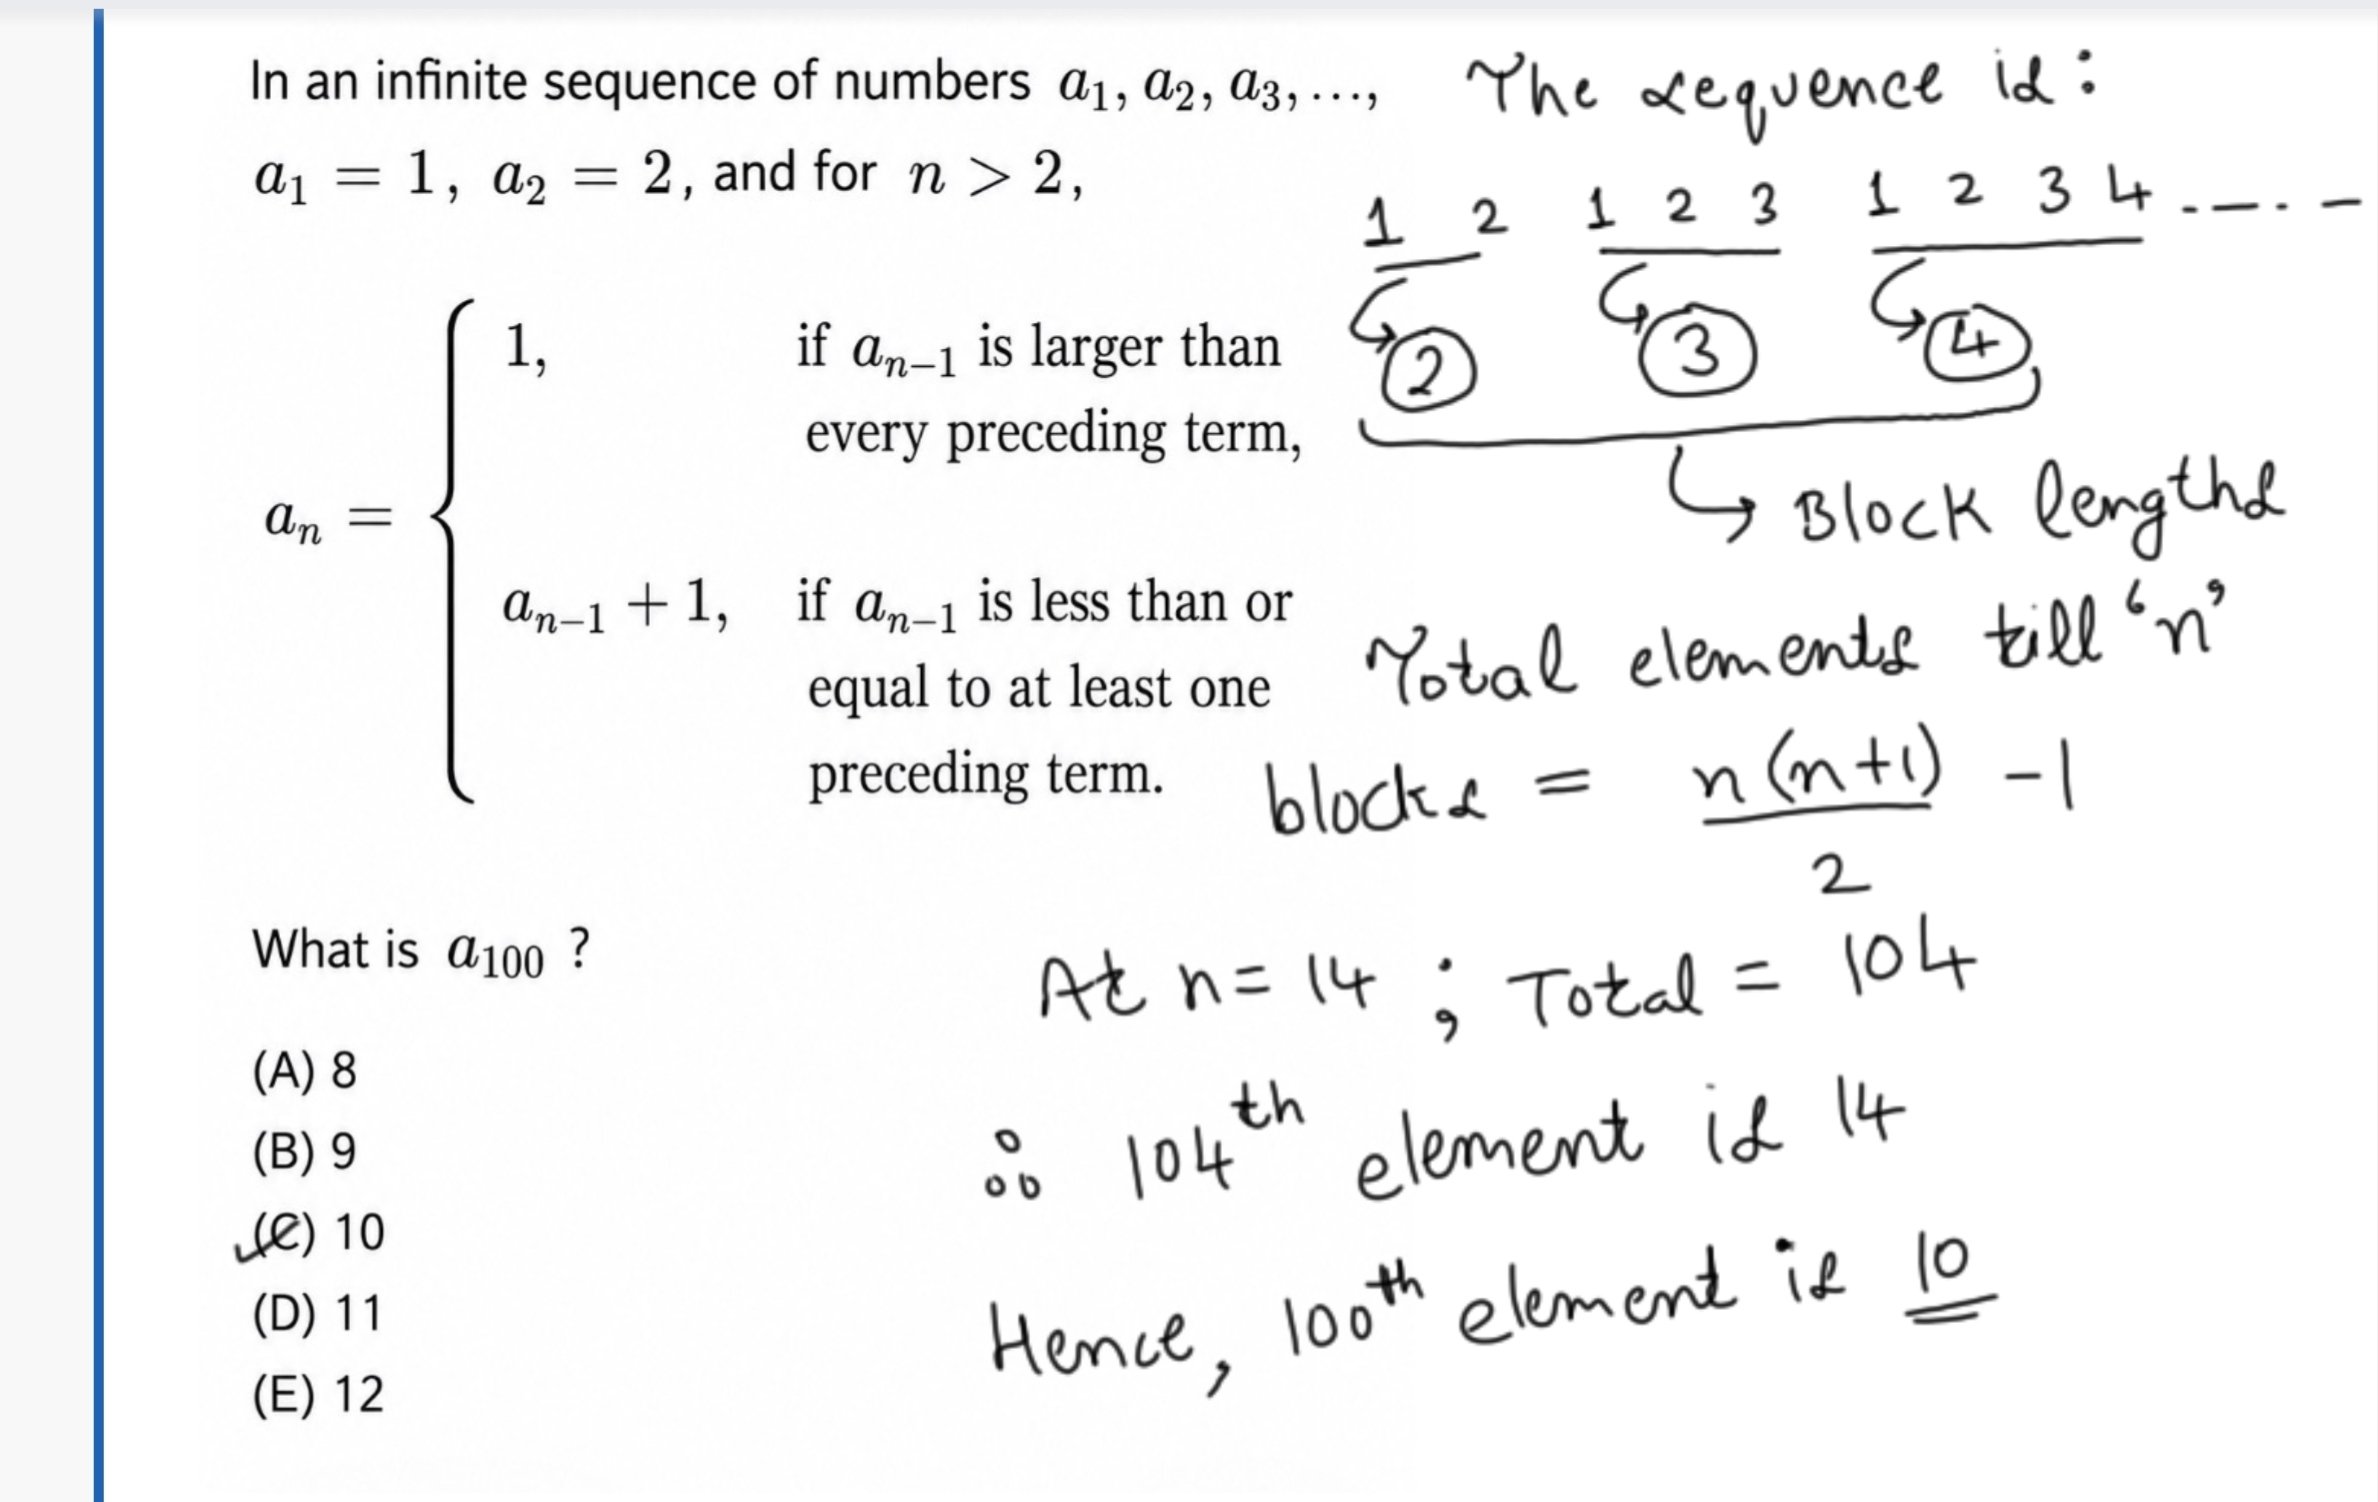 In an infinite sequence of numbers a₁, a₂, a₃, ...,
a₁ = 1, a₂ = 2, and for n > 2,
aₙ = { 1, if aₙ₋₁ is larger than
every preceding term,
aₙ₋₁ + 1, if aₙ₋₁ is less than or
equal to at least one
preceding term.
What is a₁₀₀ ?
(A) 8
(B) 9
(C) 10
(D) 11
(E) 12
The sequence is :
1 2 1 2 3 1 2 3 4 - - - - -
2 3 4
Block lengths
Total elements till 'n'
blocks = n(n+1) - 1
2
At n = 14 ; Total = 104
∴ 104th element is 14
Hence, 100th element is 10